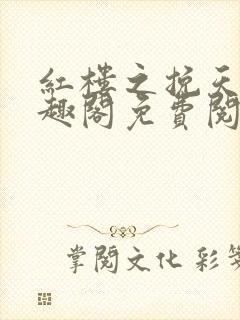 紅樓之挽天
趣閣免費閱
掌閱文化 彩箋